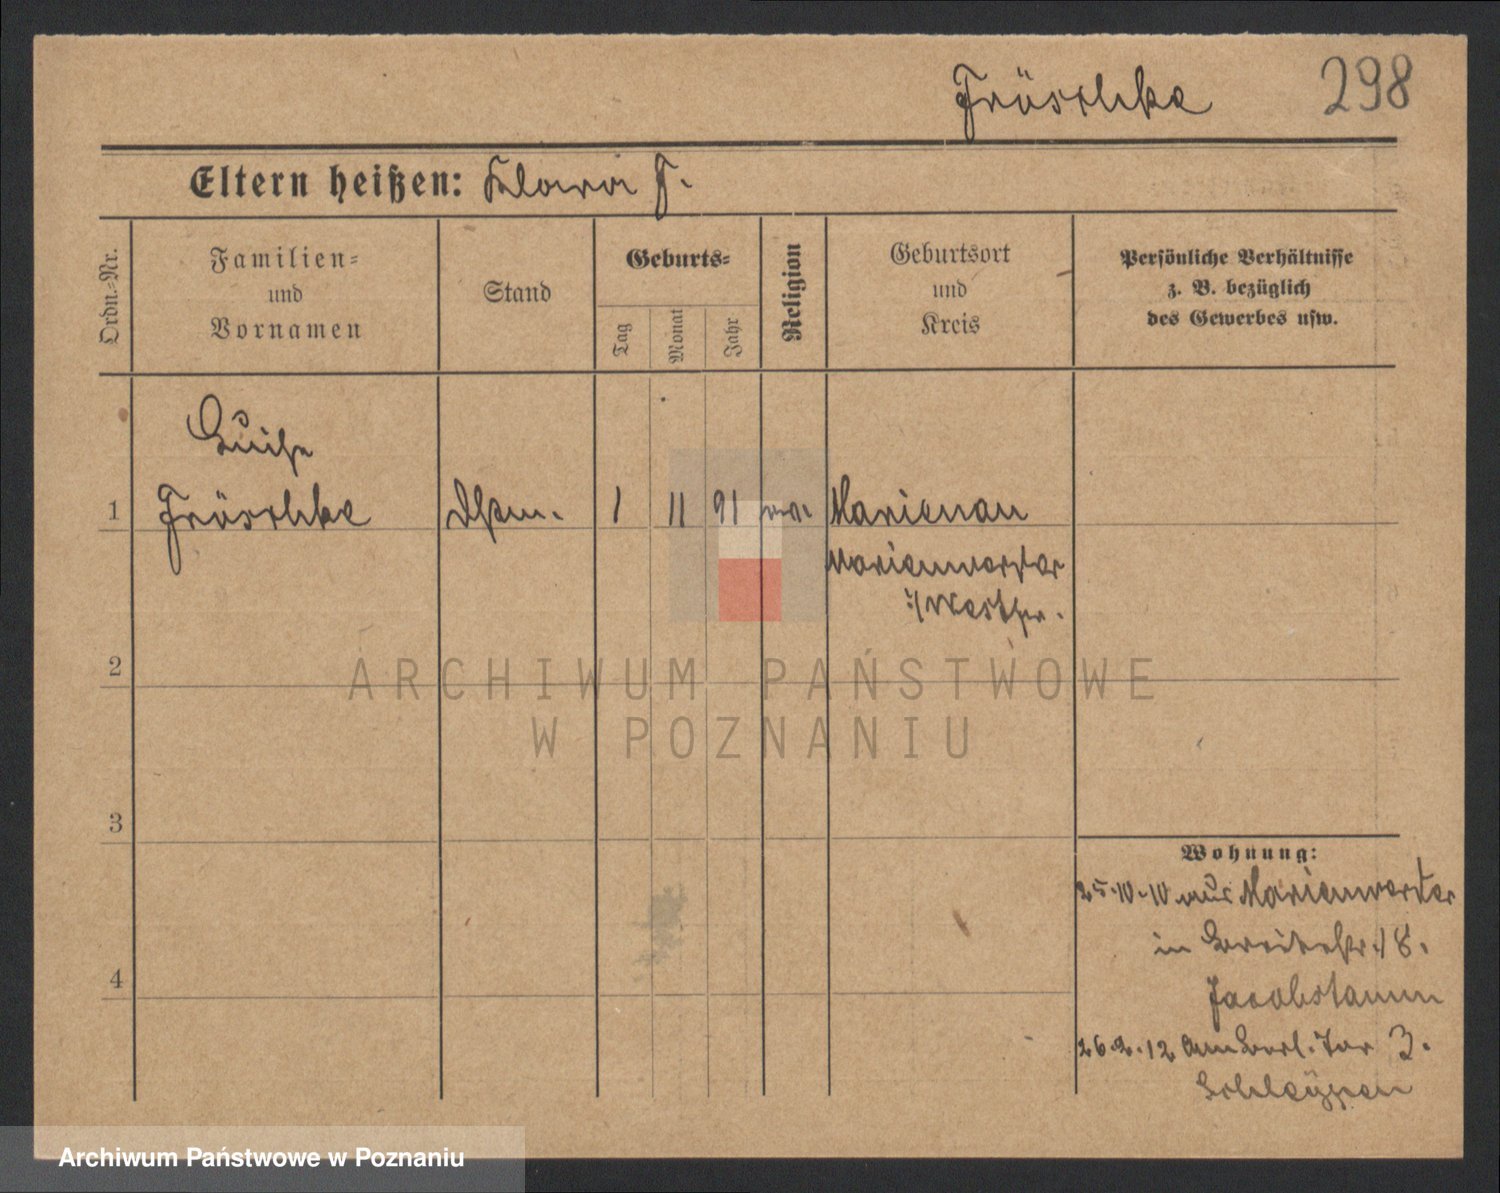 Fröschke 298
Eltern heißen: Klara F.
Ordn.=Nr.
Familien=
und
Vornamen
Stand
Geburts=
Tag
Monat
Jahr
Religion
Geburtsort
und
Kreis
Persönliche Verhältnisse
z. B. bezüglich
des Gewerbes usw.
Luise
1 Fröschke 1 11 91 Marienau
Marienwerder
i/Westpr.
2
ARCHIWUM PAŃSTWOWE
W POZNANIU
3
Wohnung:
25.10.10 aus Marienwerder
in Breitestr. 18.
Jacobstamm
4
26.2.12 Am Berl. Tor 3.
Archiwum Państwowe w Poznaniu